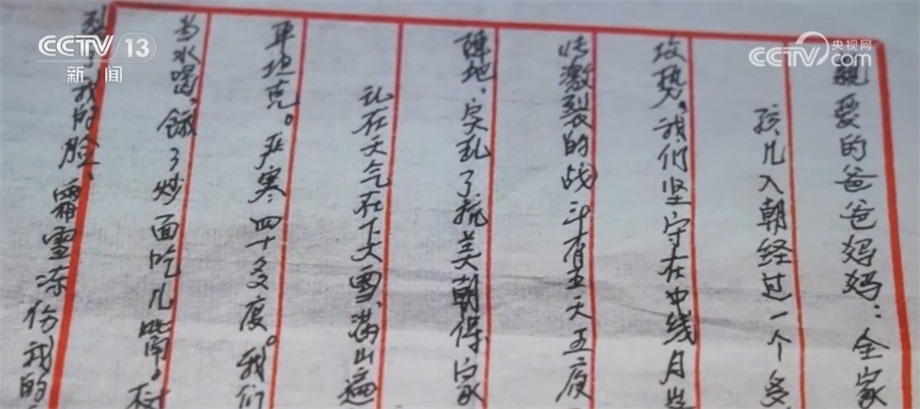 CCTV 13
新闻
CCTV
央视网
.com
親爱的爸爸妈妈:全家
孩儿入朝经过一个多
攻势。我们坚守在冲线月
激裂的战斗有五天五夜
阵地、实现了抗美朝保家
现在天气在下大雪,满山遍
车坦克。严寒四十多度。我们
当水喝,饿了炒面吃几嘴。树
我的脸,霜雪冻份我的